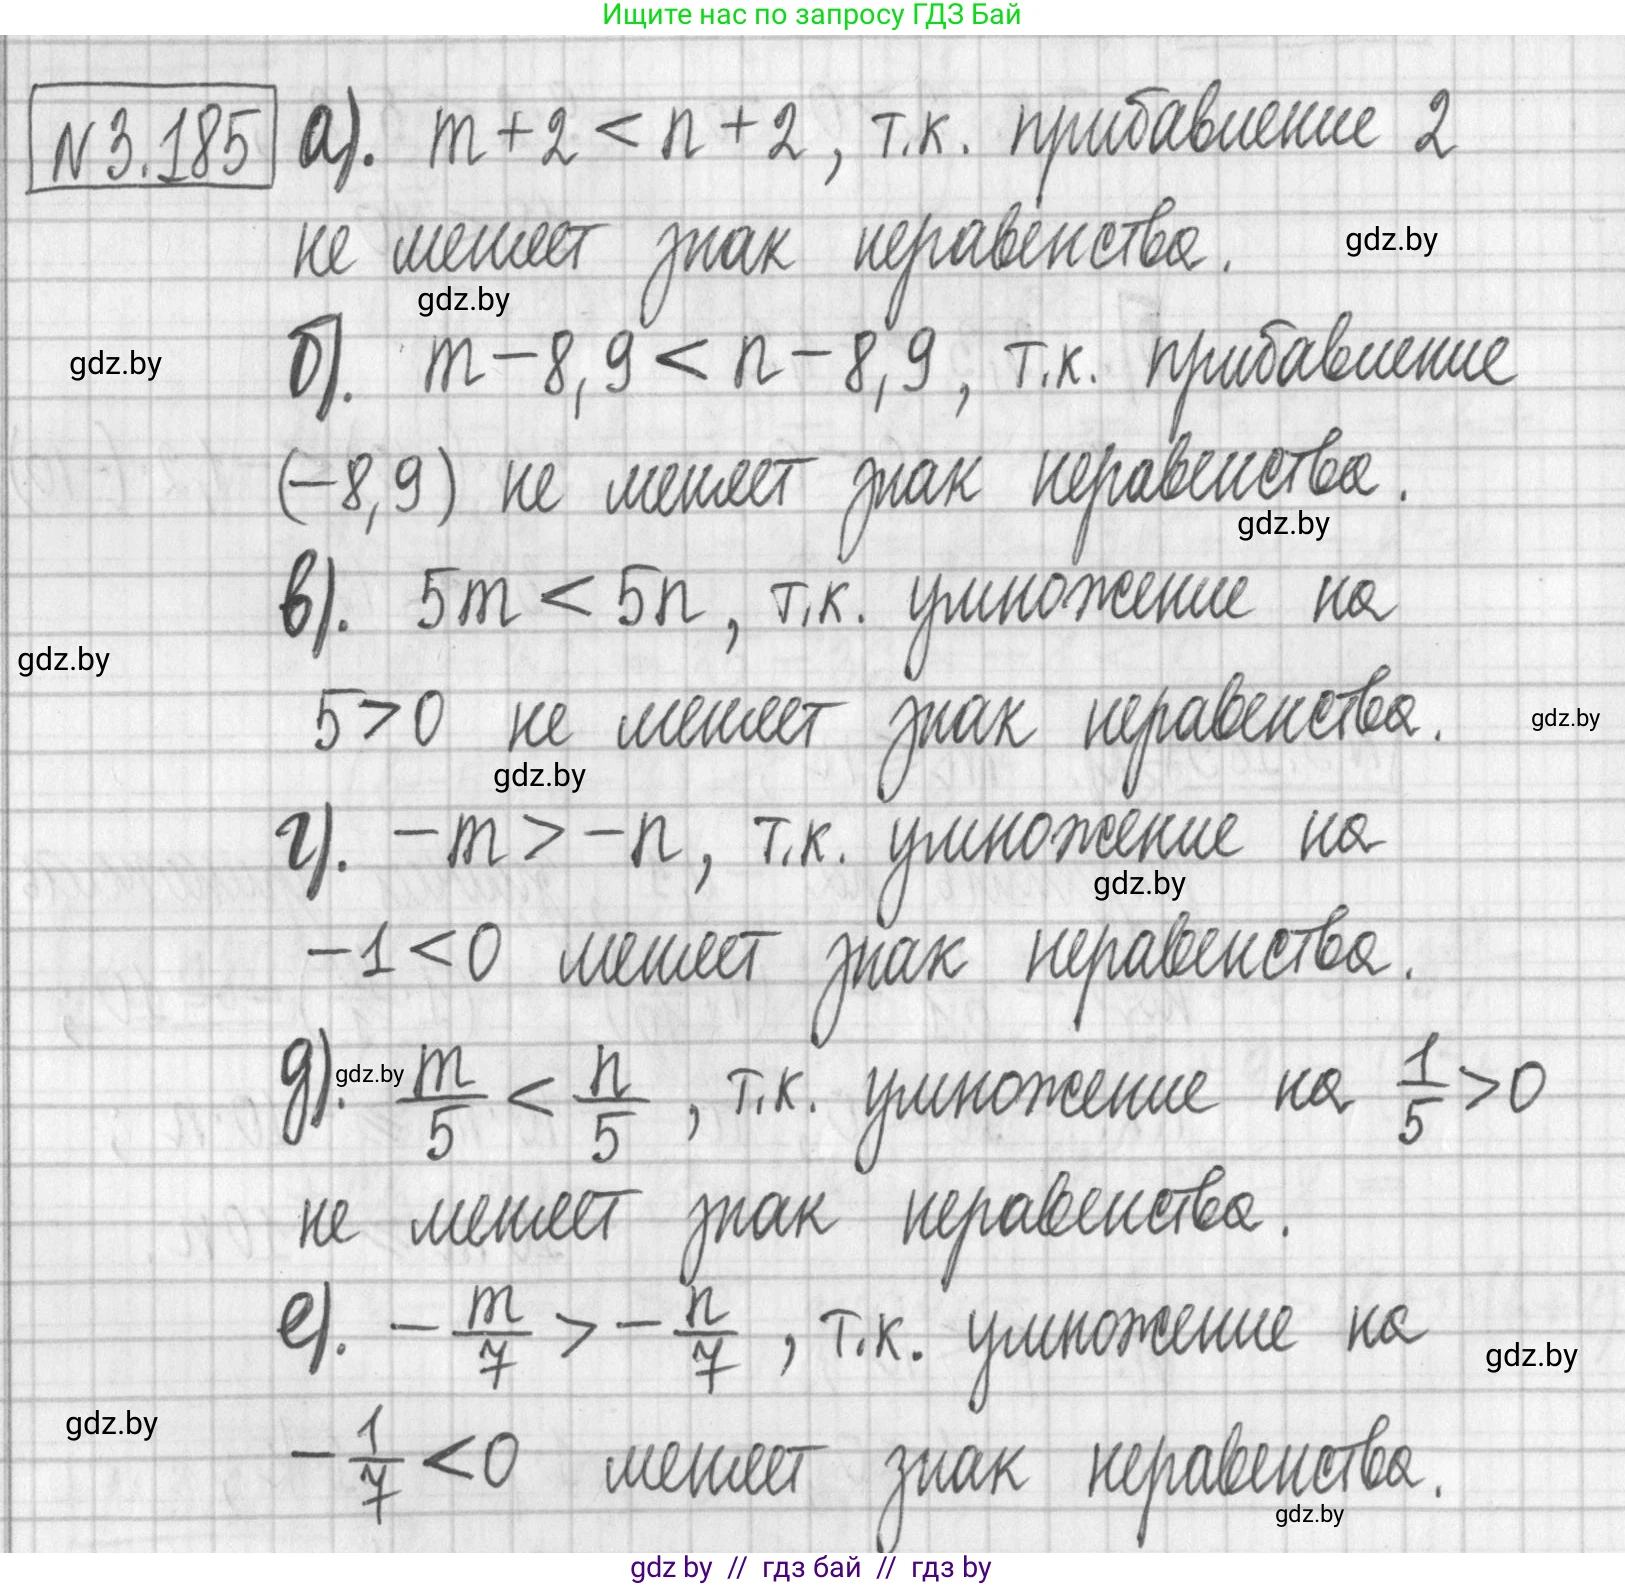 Ищите нас по запросу ГДЗ Бай
N3.185 а). m+2<n+2, т.к. прибавление 2
не меняет знак неравенства. gdz.by
gdz.by
gdz.by б). m-8,9<n-8,9, т.к. прибавление
(-8,9) не меняет знак неравенства.
gdz.by
в). 5m<5n, т.к. умножение на
gdz.by
5>0 не меняет знак неравенства. gdz.by
gdz.by
г). -m>-n, т.к. умножение на
gdz.by
-1<0 меняет знак неравенства.
д). gdz.by m/5 < n/5, т.к. умножение на 1/5>0
не меняет знак неравенства.
е). -m/7 > -n/7, т.к. умножение на
gdz.by
gdz.by
-1/7<0 меняет знак неравенства.
gdz.by
gdz by // гдз бай // гдз by